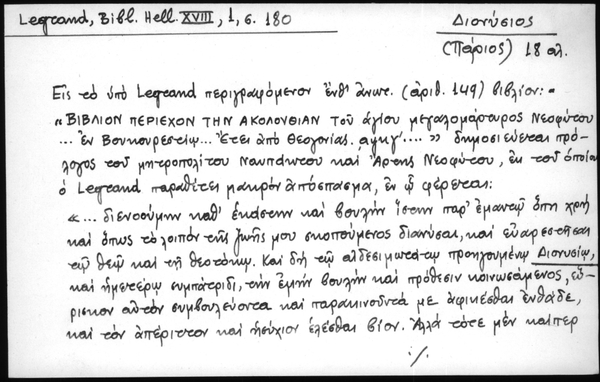 Legrand, Bibl. Hell. XVIII, 1, σ. 180
Διονύσιος
(Πάριος) 18 αι.
Εἰς τὸ ὑπὸ Legrand περιγραφόμενον ἔνθ' ἀνωτ. (ἀριθ. 149) βιβλίον:-
"ΒΙΒΛΙΟΝ ΠΕΡΙΕΧΟΝ ΤΗΝ ΑΚΟΛΟΥΘΙΑΝ τοῦ ἁγίου μεγαλομάρτυρος Νεοφύτου
... ἐν Βουκουρεστίῳ... Ἔτει ἀπὸ Θεογονίας. αψκγ'...." δημοσιεύεται πρό-
λογος τοῦ μητροπολίτου Ναυπάκτου καὶ Ἄρτης Νεοφύτου, ἐκ τοῦ ὁποίου
ὁ Legrand παραθέτει μακρὸν ἀπόσπασμα, ἐν ᾧ φέρεται:
"... διενοούμην καθ' ἑκάστην καὶ βουλὴν ἵστην παρ' ἐμαυτῷ ὅπη χρὴ
καὶ ὅπως τὸ λοιπὸν τῆς ζωῆς μου σκοπούμενος διανύσαι, καὶ εὐαρεστῆσαι
τῷ θεῷ καὶ τῇ θεοτόκῳ. Καὶ δὴ τῷ αἰδεσιμωτάτῳ προηγουμένῳ Διονυσίῳ,
καὶ ἡμετέρῳ συμπατρίδι, τὴν ἐμὴν βουλὴν καὶ πρόθεσιν κοινωσάμενος, εὕ-
ρισκον αὐτὸν συμβουλεύοντα καὶ παρακινοῦντά με ἀφικέσθαι ἐνθάδε,
καὶ τὸν ἀπέριττον καὶ ἡσύχιον ἑλέσθαι βίον. Ἀλλὰ τότε μὲν καίπερ
./.